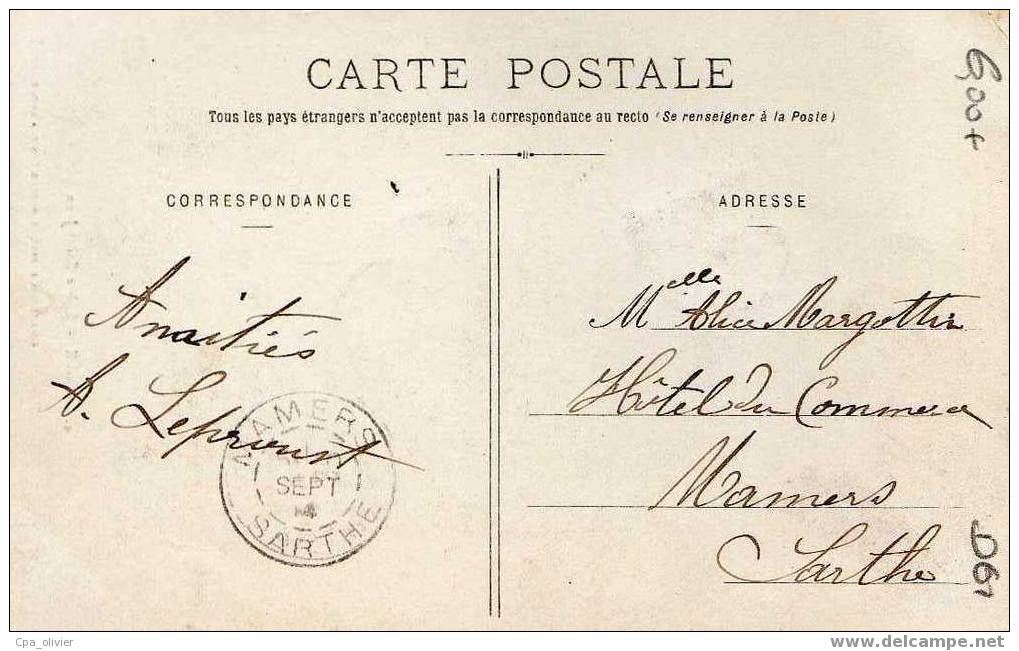 CARTE POSTALE
Tous les pays étrangers n'acceptent pas la correspondance au recto (Se renseigner à la Poste)
CORRESPONDANCE
ADRESSE
Amitiés
A. Leproust
MAMERS
SEPT
SARTHE
Melle Alice Margottin
Hôtel du Commerce
Mamers
Sarthe
D61
Cpa_olivier
www.delcampe.net